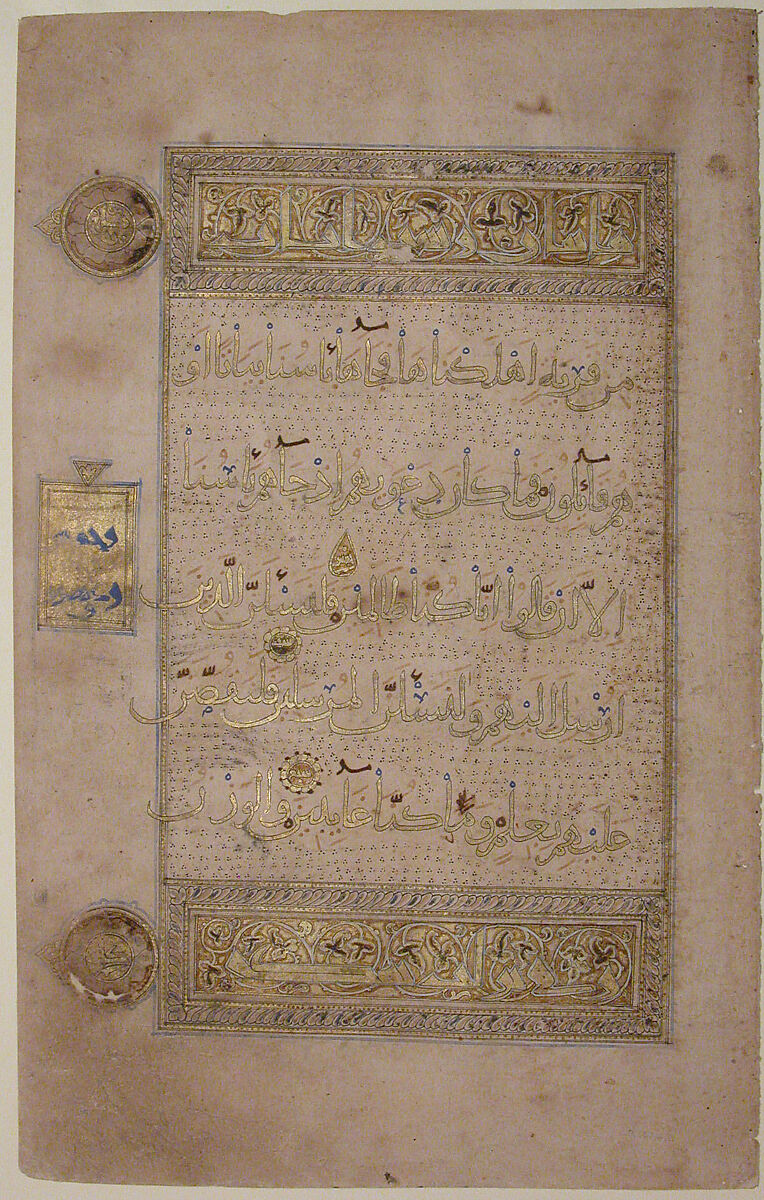 مِن قَرْيَةٍ أَهْلَكْنَاهَا فَجَآءَهَا بَأْسُنَا بَيَاتًا أَوْ
هُمْ قَآئِلُونَ فَمَا كَانَ دَعْوَيهُمْ إِذْ جَآءَهُمْ بَأْسُنَا
إِلَّا أَن قَالُوا إِنَّا كُنَّا ظَالِمِينَ فَلَنَسْئَلَنَّ الَّذِينَ
أُرْسِلَ إِلَيْهِمْ وَلَنَسْئَلَنَّ الْمُرْسَلِينَ فَلَنَقُصَّنَّ
عَلَيْهِمْ بِعِلْمٍ وَمَا كُنَّا غَآئِبِينَ وَالْوَزْنُ